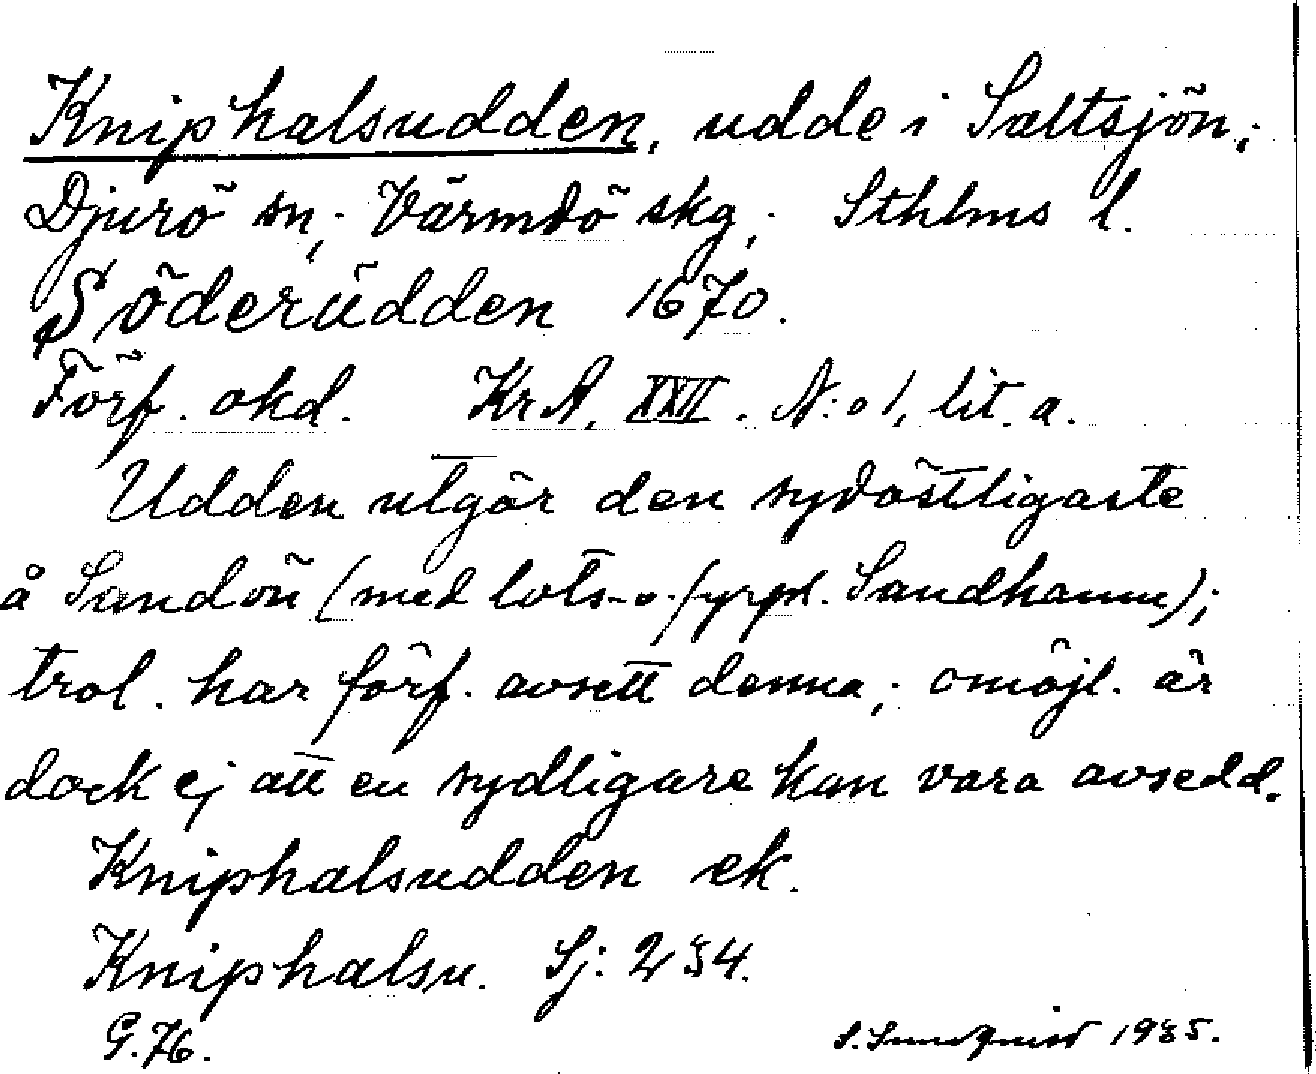 Kniphalsudden, udde i Saltsjön,;
Djurö sn,; Värmdö skg,; Sthlms l.
Söderüdden 1670.
Förf. okd. KrA, XXII. N:o 1, lit. a.
Udden utgör den sydöstligaste
å Sandön (med lots- o. fyrpl. Sandhamn);
trol. har förf. avsett denna,; omöjl. är
dock ej att en sydligare kan vara avsedd.
Kniphalsudden ek.
Kniphalsu. Sj: 234.
G. 76.
S. Sundquist 1935.